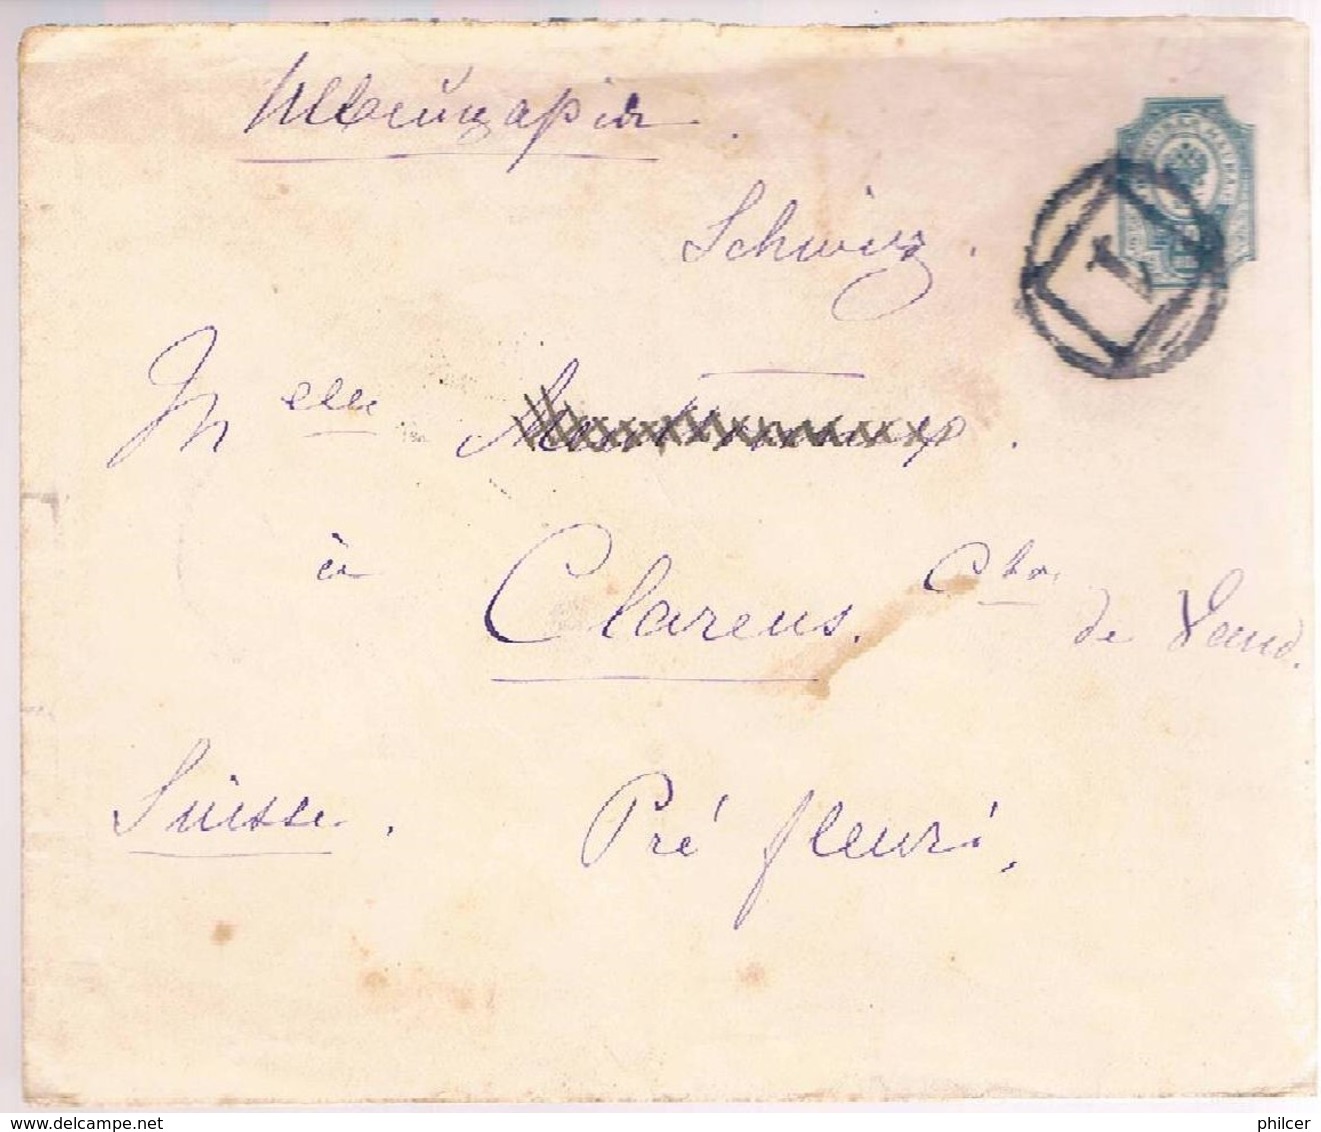 Швейцарія.
Schweiz.
Melle
à Clarens. Cton
de Vaud.
Suisse. Pré fleuri,
www.delcampe.net philcer